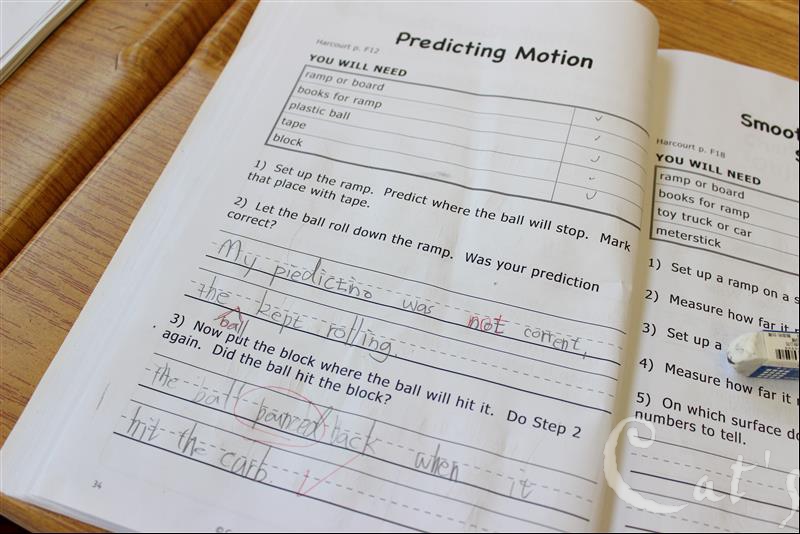 Harcourt p. F12
Predicting Motion
YOU WILL NEED
ramp or board
books for ramp
plastic ball
tape
block
1) Set up the ramp. Predict where the ball will stop. Mark
that place with tape.
2) Let the ball roll down the ramp. Was your prediction
correct?
My piedictino was not corrent,
the kept rolling.
ball
3) Now put the block where the ball will hit it. Do Step 2
again. Did the ball hit the block?
the ball back when it
hit the carb.
34
Harcourt p. F18
Smoot
YOU WILL NEED
ramp or board
books for ramp
toy truck or car
meterstick
1) Set up a ramp on a s
2) Measure how far it r
3) Set up a
4) Measure how far it r
5) On which surface do
numbers to tell.
Cat's